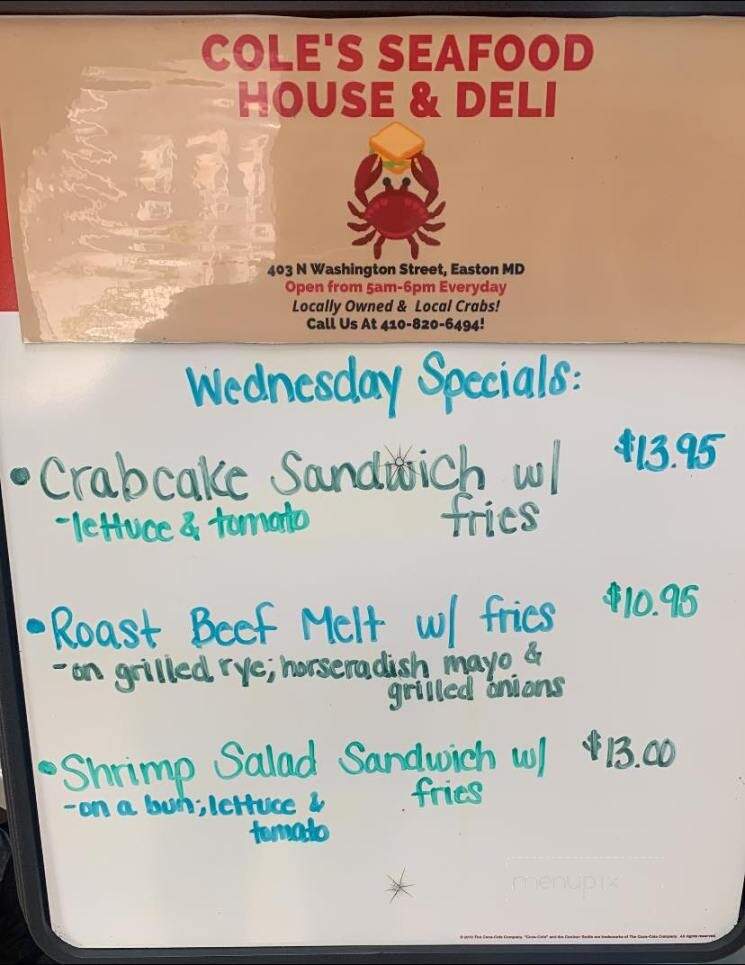 COLE'S SEAFOOD
HOUSE & DELI
403 N Washington Street, Easton MD
Open from 5am-6pm Everyday
Locally Owned & Local Crabs!
Call Us At 410-820-6494!
Wednesday Specials:
• Crabcake Sandwich w/ $13.95
fries
-lettuce & tomato
• Roast Beef Melt w/ fries $10.95
-on grilled rye; horseradish mayo &
grilled onions
• Shrimp Salad Sandwich w/ $13.00
fries
-on a bun; lettuce &
tomato
menupix